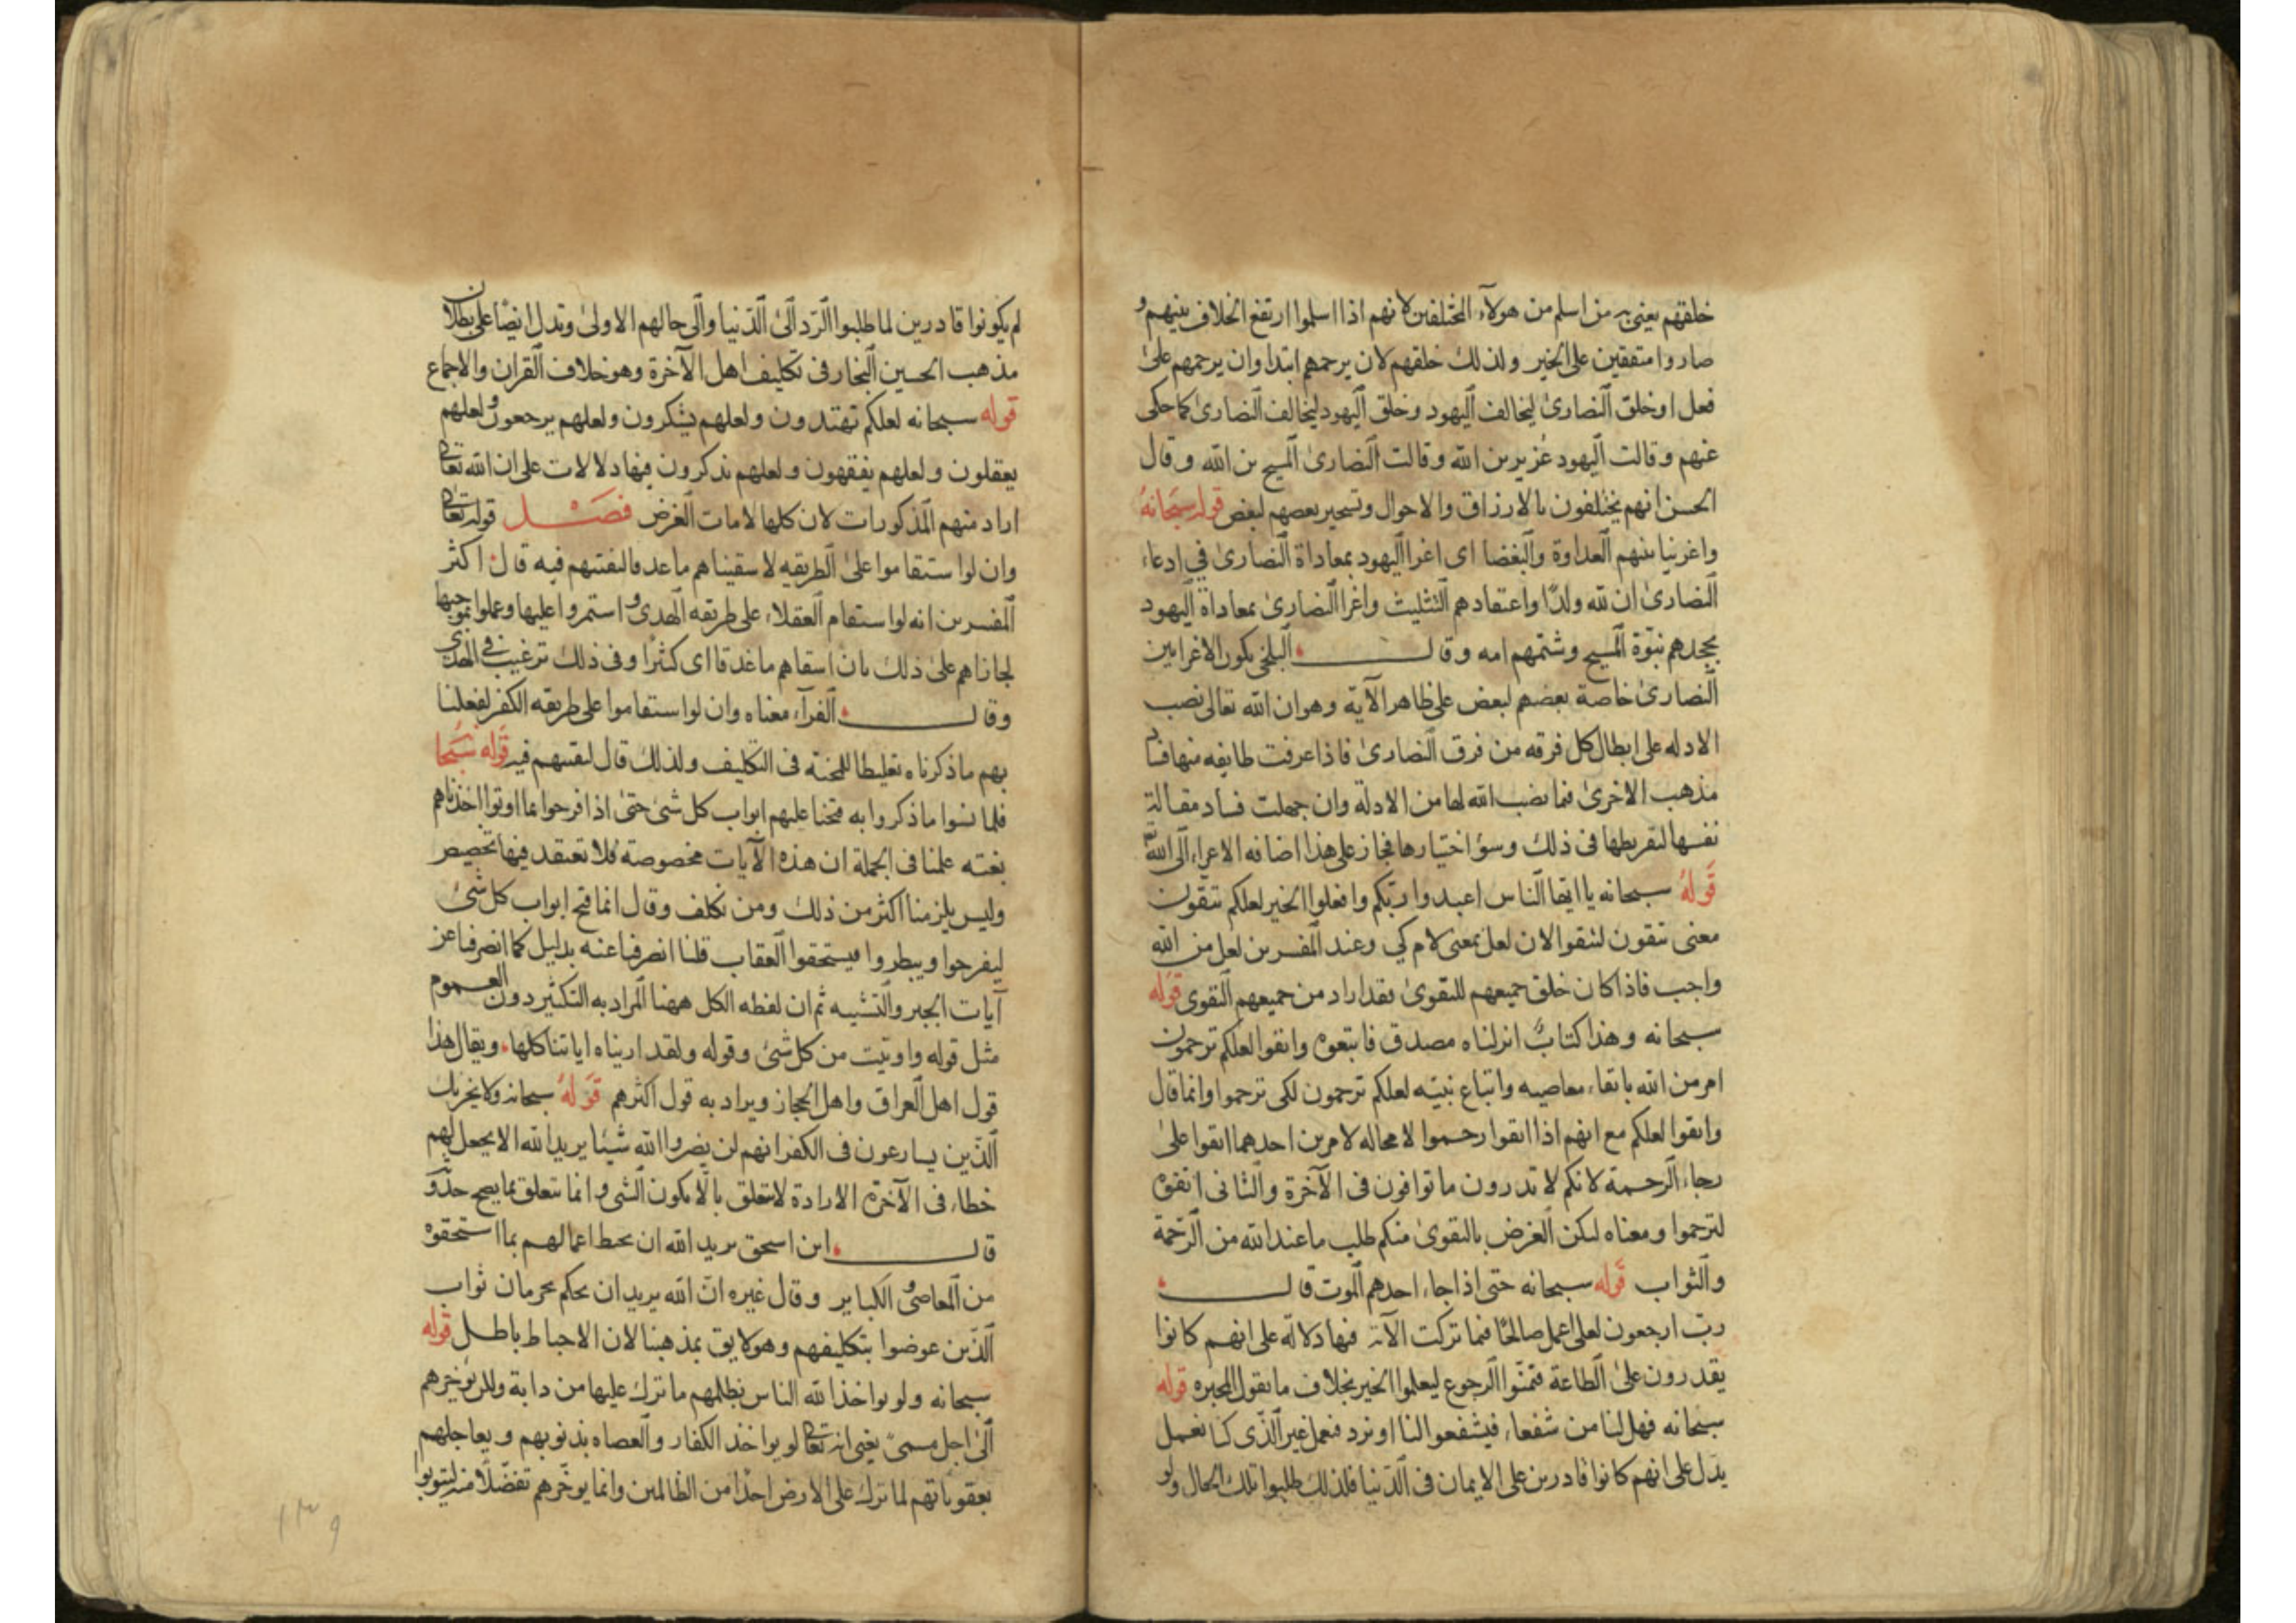 خلقهم يعنى به من اسلم من هولآء المختلفين لانهم اذا اسلموا ارتفع الخلاف بينهم و
صاروا متفقين على الخير ولذلك خلقهم لان يرحمهم ابتدا وان يرحمهم على
فعل او خلق النصارى ليخالف اليهود وخلق اليهود ليخالف النصارى كما حكى
عنهم وقالت اليهود عزير بن الله وقالت النصارى المسيح بن الله وقال
الحسن انهم يختلفون بالارزاق والاحوال وتسخير بعضهم لبعض قوله سبحانه
واغرينا بينهم العداوة والبغضا اى اغرا اليهود بمعاداة النصارى فى ادعاء
النصارى ان لله ولدًا واعتقادهم التثليث واغرا النصارى بمعاداة اليهود
بجحدهم نبوّة المسيح وشتمهم امه وقال البلخى يكون الاغرا بين
النصارى خاصة بعضهم لبعض على ظاهر الآية وهو ان الله تعالى نصب
الادله على ابطال كل فرقه من فرق النصارى فاذا عرفت طايفه منها فساد
مذهب الاخرى فما نصب الله لها من الادلة وان جهلت فساد مقالة
نفسها لتفريطها فى ذلك وسؤ اختيارها فجاز على هذا اضافه الاغراء الى الله تع
قوله سبحانه يا ايها الناس اعبدوا ربّكم وافعلوا الخير لعلكم تتقون
معنى تتقون لتتقوا لان لعل بمعنى لام كي وعند المفسرين لعل من الله
واجب فاذا كان خلق جميعهم للتقوى فقد اراد من جميعهم التقوى قوله
سبحانه وهذا كتابٌ انزلناه مصدق فاتبعوه واتقوا لعلكم ترحمون
امر من الله باتقاء معاصيه واتباع نبيّه لعلكم ترحمون لكى ترحموا وانما قال
واتقوا لعلكم مع انهم اذا اتقوا رحموا لا محاله لامرين احدهما اتقوا على
رجاء الرحمة لانكم لا تدرون ما توافون فى الآخرة والثانى اتقوه
لترحموا ومعناه ليكن الغرض بالتقوى منكم طلب ما عند الله من الرّحمة
والثواب قوله سبحانه حتى اذا جاء احدهم الموت قال
ربّ ارجعون لعلى اعمل صالحًا فيما تركت الآية فيها دلالة على انهم كانوا
يقدرون على الطاعة فتمنّوا الرجوع ليعلموا الخير بخلاف ما يقول المجبره قوله
سبحانه فهل لنا من شفعاء فيشفعوا لنا او نرد فنعمل غير الّذى كنا نعمل
يدل على انهم كانوا قادرين على الايمان فى الدّنيا فلذلك طلبوا تلك الحال ولو
لم يكونوا قادرين لما طلبوا الرّد الى الدّنيا والى حالهم الاولى وتدل ايضًا على بطلان
مذهب الحسين النجار فى تكليف اهل الآخرة وهو خلاف القران والاجماع
قوله سبحانه لعلكم تهتدون ولعلهم يشكرون ولعلهم يرجعون ولعلهم
يعقلون ولعلهم يفقهون ولعلهم يذكرون فيها دلالات على ان الله تعالى
اراد منهم المذكورات لان كلها لامات الغرض فصل قوله تعالى
وان لو استقاموا على الطريقه لاسقيناهم ما غدقا لنفتنهم فيه قال اكثر
المفسرين انه لو استقام العقلاء على طريقه الهدى و استمروا عليها وعملوا بموجبها
لجازاهم على ذلك بان اسقاهم ما غدقا اى كثيرًا وفى ذلك ترغيب فى الهدى
وقال الفرآء معناه وان لو استقاموا على طريقه الكفر لفعلنا
بهم ما ذكرناه تغليظا للمحنة فى التكليف ولذلك قال لنفتنهم فيه قوله سبحا
فلما نسوا ما ذكروا به فتحنا عليهم ابواب كل شىء حتى اذا فرحوا بما اوتوا اخذناهم
بغته علمنا فى الجملة ان هذه الآيات مخصوصة فلا تعتقد فيها تخصيص
وليس يلزمنا اكثر من ذلك ومن تكلف وقال انما فتح ابواب كل شىء
ليفرحوا ويبطروا فيستحقوا العقاب قلنا انصرفنا عنه بدليل كما انصرفنا عن
آيات الجبر والتشبيه ثم ان لفظه الكل ههنا المراد به التكثير دون العموم
مثل قوله واوتيت من كل شىء وقوله ولقد اريناه اياتنا كلها ويقال هذا
قول اهل العراق واهل الحجاز ويراد به قول اكثرهم قوله سبحانه ولا يحزنك
الّذين يسارعون فى الكفر انهم لن يضروا الله شيئا يريد الله الا يجعل لهم
حظا فى الآخرة الارادة لا تتعلق بالا يكون الشى وانما تتعلق بما يصح حدوثه
قال ابن اسحق يريد الله ان يحبط اعمالهم بما استحقوه
من المعاصى و الكباير وقال غيره انّ الله يريد ان يحكم بحرمان ثواب
الّذين عوضوا بتكليفهم وهو لايق بمذهبنا لان الاحباط باطل قوله
سبحانه ولو يواخذ الله الناس بظلمهم ما ترك عليها من دابة ولكن يؤخرهم
الى اجل مسمىّ يعنى انه تعالى لو يواخذ الكفار والعصاه بذنوبهم ويعاجلهم
بعقوباتهم لما ترك على الارض احدًا من الظالمين وانما يؤخرهم تفضّلًا منه ليتوبوا